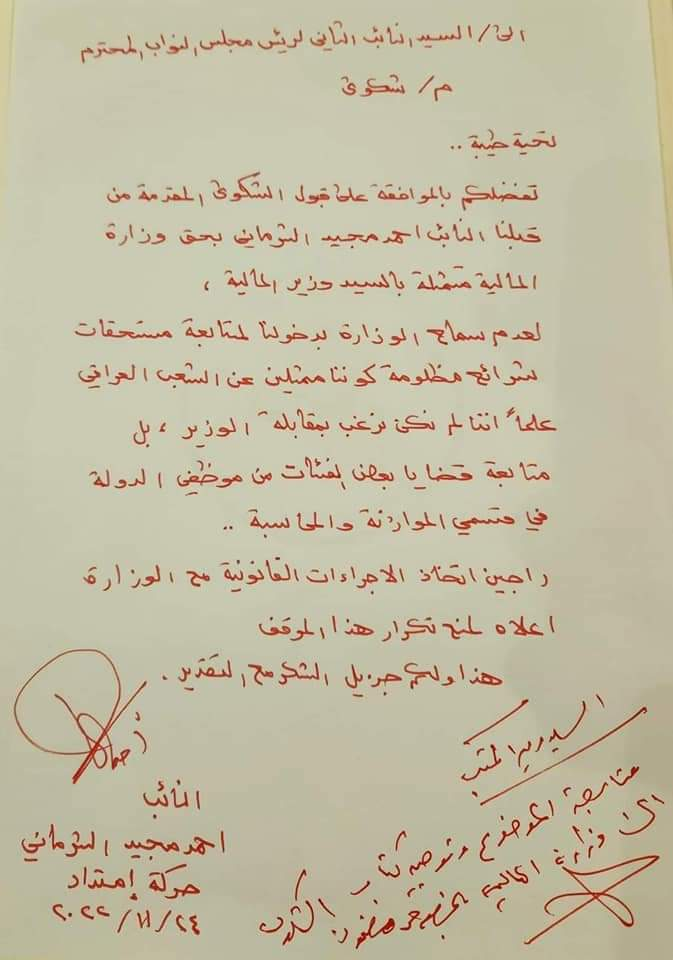 الى/ السيد النائب الثاني لرئيس مجلس النواب المحترم
م/ شكوى
تحية طيبة ..
تفضلكم بالموافقة على قبول الشكوى المقدمة من
قبلنا النائب احمد مجيد الشرماني بحق وزارة
المالية متمثلة بالسيد وزير المالية ،
لعدم سماح الوزارة بدخولنا لمتابعة مستحقات
شرائح مظلومة كوننا ممثلين عن الشعب العراقي
علماً اننا لم نكن نرغب بمقابلة الوزير ، بل
متابعة قضايا بعض الفئات من موظفي الدولة
في قسمي الموازنة والمحاسبة ..
راجين اتخاذ الاجراءات القانونية مع الوزارة
اعلاه لمنع تكرار هذا الموقف
هذا ولكم جزيل الشكر مع التقدير .
النائب
احمد مجيد الشرماني
حركة إمتداد
٢٠٢٢/١١/٢٤
السيد مدير المكتب
متابعة الموضوع وتوجيه كتاب
الى وزارة المالية بخصوص الشكوى